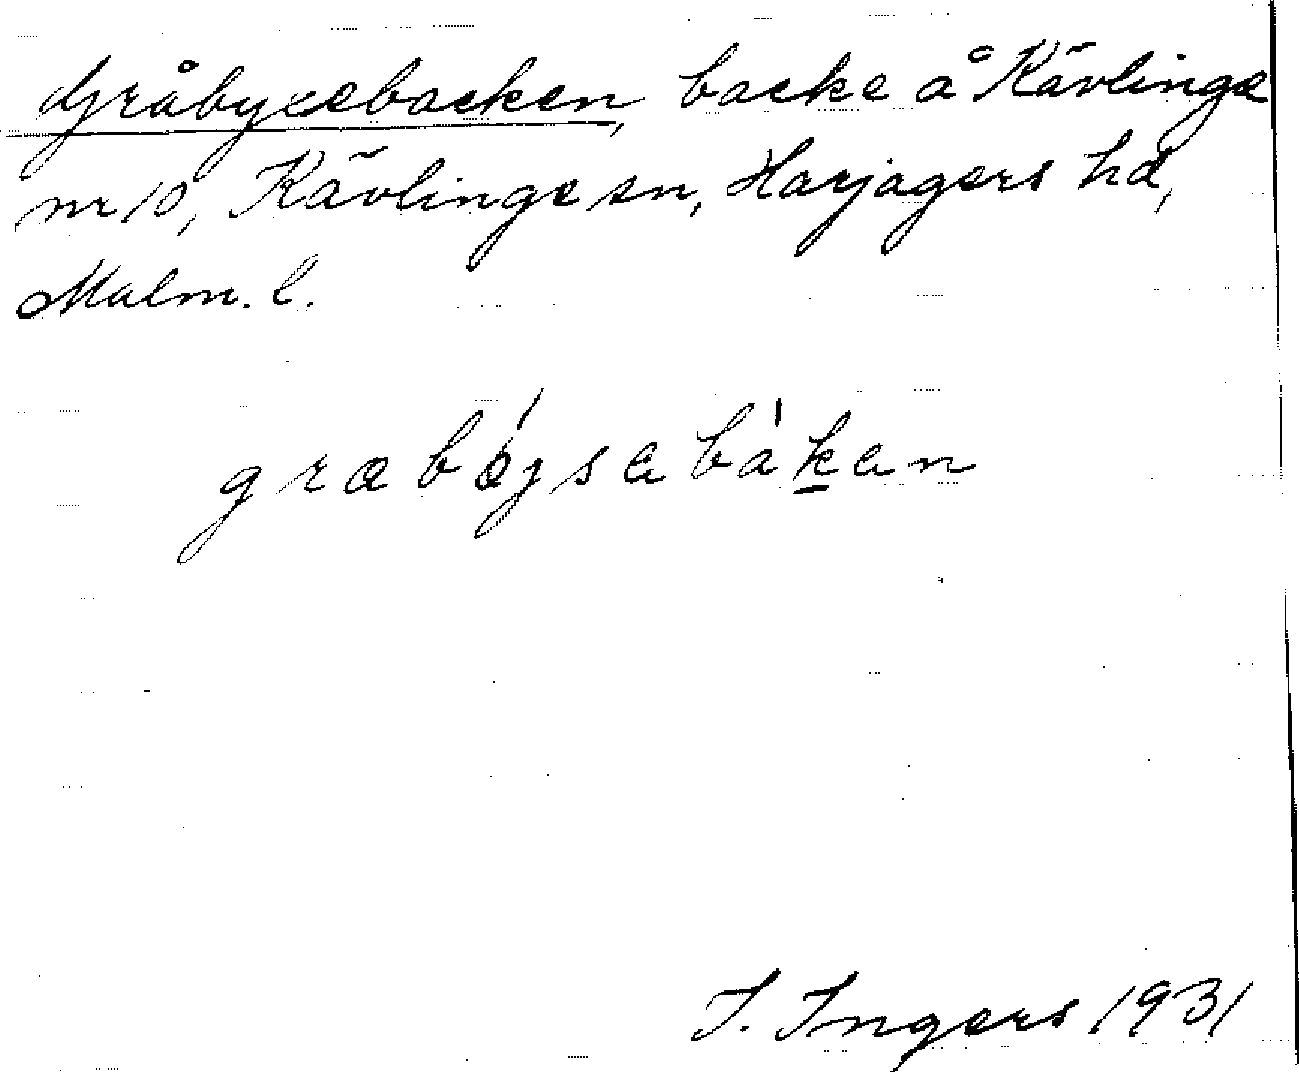 Gråbycebacken, backe å Kävlinge
nr 10, Kävlinge sn, Harjagers hd,
Malm. l.
græbøysabakan
I. Ingers 1931